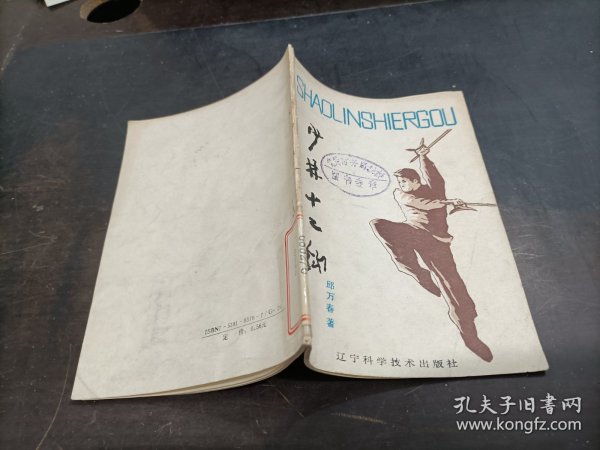 SHAOLINSHIERGOU
少林十二钩
邱万春 著
辽宁科学技术出版社
定 价：0.56元
孔夫子旧书网
www.kongfz.com